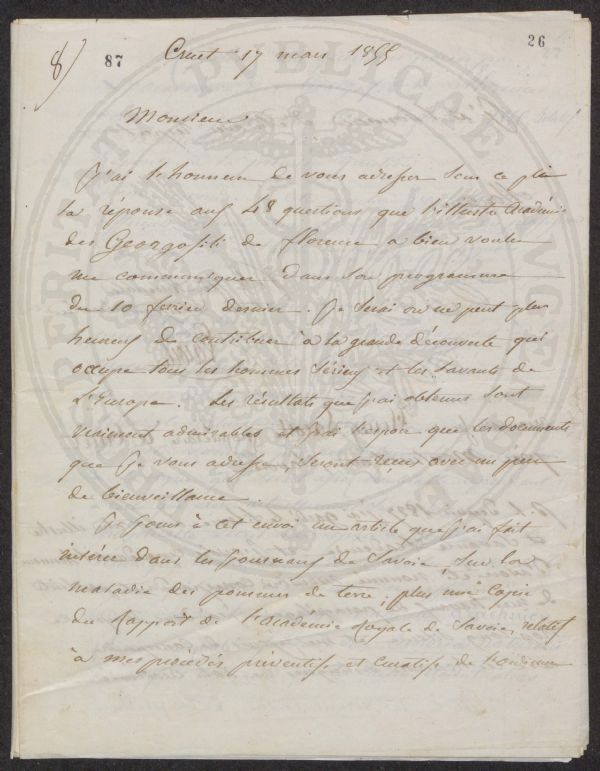 8)
87
26
Cruet 17 mars 1855
Monsieur
J'ai l'honneur de vous adresser sous ce pli
la réponse aux 48 questions que l'illustre Académie
des Georgofili de florence a bien voulu
me communiquer dans son programme
du 10 fevrier dernier. Je serai on ne peut plus
heureux de contribuer à la grande découverte qui
occupe tous les hommes sérieux et les savants de
l'Europe. Les résultats que j'ai obtenus sont
vraiment admirables et j'ai l'espoir que les documents
que je vous adresse, seront reçus avec un peu
de bienveillance.
Je joins à cet envoi un article que j'ai fait
insérer dans les journaux de Savoie, sur la
maladie des pommes de terre, plus une copie
du Rapport de l'académie Royale de Savoie, relatif
à mes procédés préventifs et curatifs de l'oidium
PROSPERITATI PUBLICAE